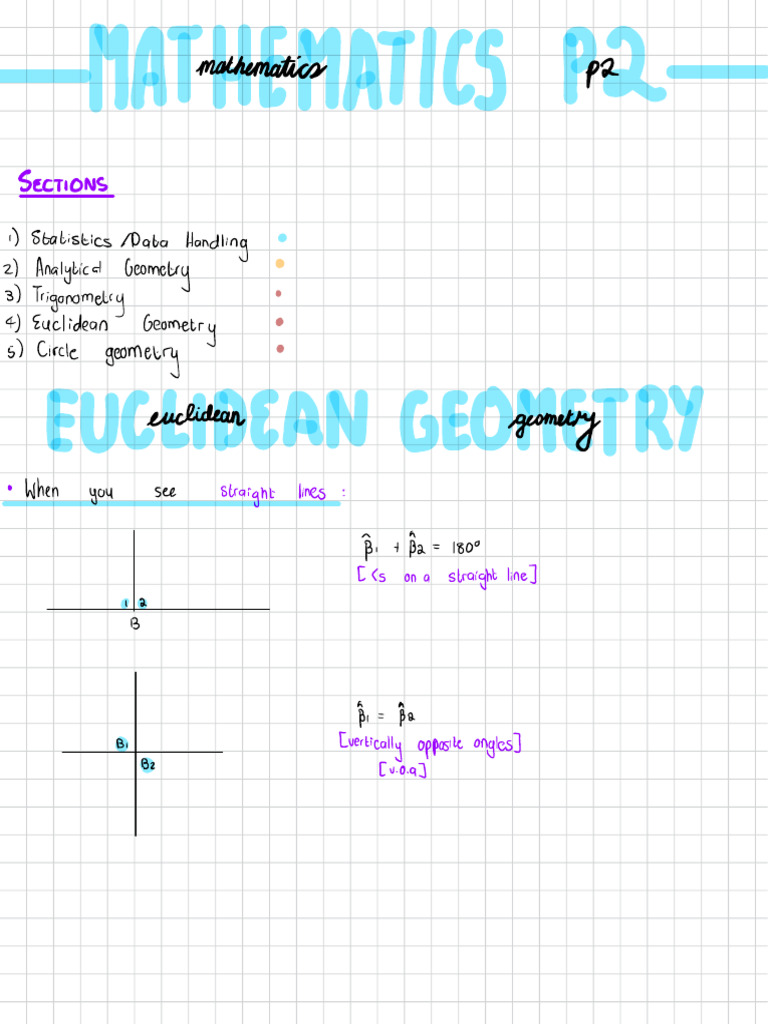 MATHEMATICS P2
mathematics p2
SECTIONS
1) Statistics /Data Handling
2) Analytical Geometry
3) Trigonometry
4) Euclidean Geometry
5) Circle geometry
EUCLIDEAN GEOMETRY
euclidean geometry
• When you see straight lines :
B̂1 + B̂2 = 180°
[<s on a straight line]
1 2
B
B̂1 = B̂2
[vertically opposite angles]
[v.o.a]
B1
B2